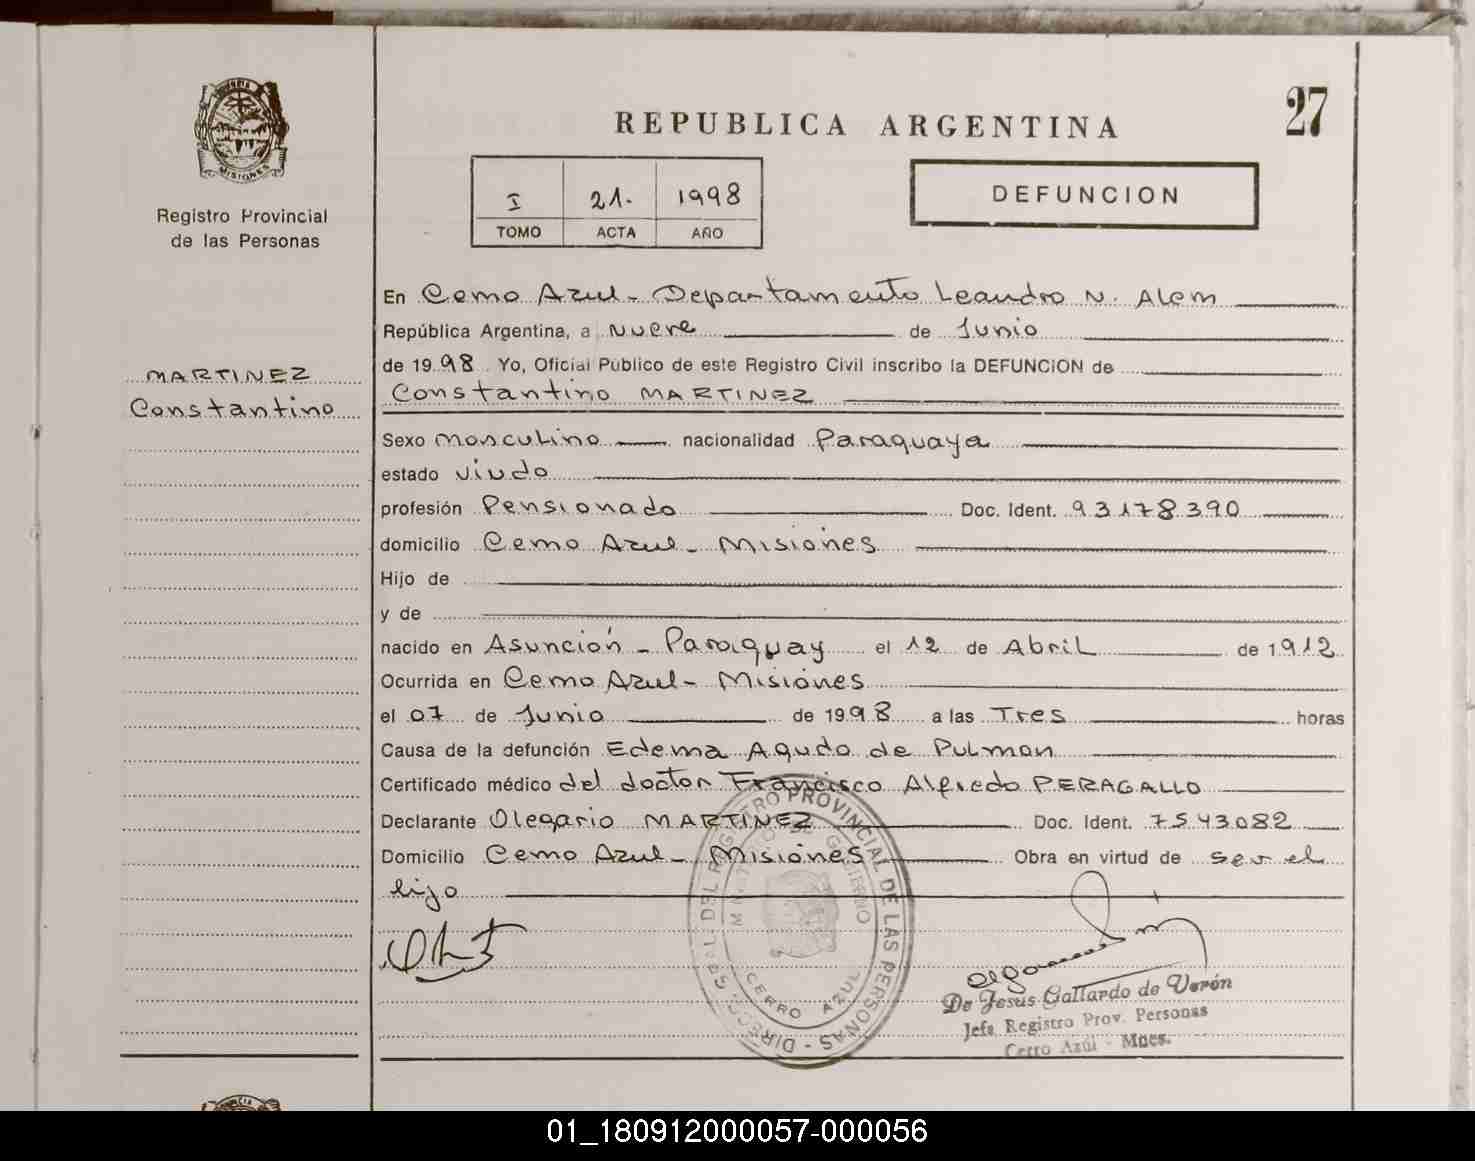 27
REPUBLICA ARGENTINA
I 21. 1998
TOMO ACTA AÑO
DEFUNCION
PROVINCIA
MISIONES
Registro Provincial
de las Personas
MARTINEZ
Constantino
En Cerro Azul - Departamento Leandro N. Alem
República Argentina, a Nueve de Junio
de 1998 Yo, Oficial Público de este Registro Civil inscribo la DEFUNCION de
Constantino MARTINEZ
Sexo Masculino nacionalidad Paraguaya
estado Viudo
profesión Pensionado Doc. Ident. 93178390
domicilio Cerro Azul - Misiones
Hijo de
y de
nacido en Asunción - Paraguay el 12 de Abril de 1912
Ocurrida en Cerro Azul - Misiones
el 07 de Junio de 1998 a las Tres horas
Causa de la defunción Edema Agudo de Pulmon
Certificado médico del doctor Francisco Alfredo PERAGALLO
Declarante Olegario MARTINEZ Doc. Ident. 7543082
Domicilio Cerro Azul - Misiones Obra en virtud de ser el
hijo
DEL REGISTRO PROVINCIAL DE LAS PERSONAS
GOBIERNO
CERRO AZUL
De Jesus Gallardo de Verón
Jefe Registro Prov. Personas
Cerro Azul - Mnes.
01_180912000057-000056